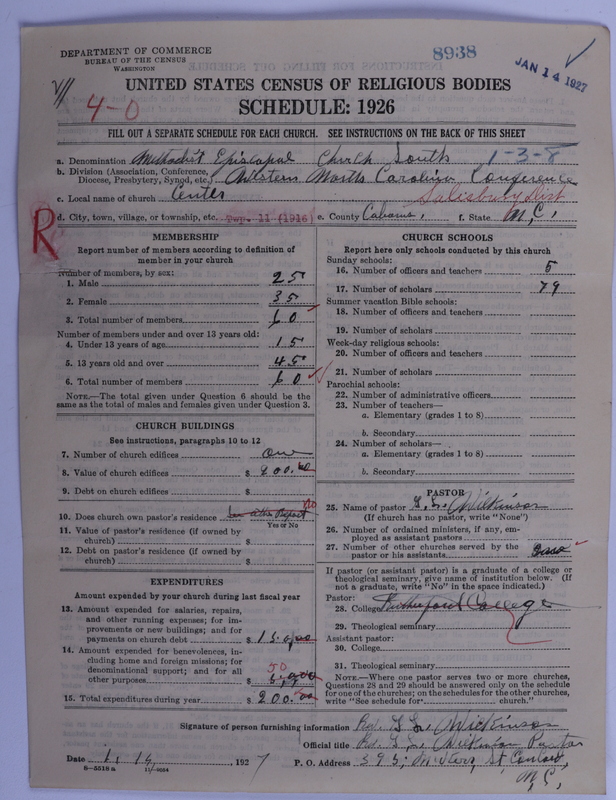 DEPARTMENT OF COMMERCE
BUREAU OF THE CENSUS
WASHINGTON
8938
JAN 14 1927
UNITED STATES CENSUS OF RELIGIOUS BODIES
SCHEDULE: 1926
4-0
FILL OUT A SEPARATE SCHEDULE FOR EACH CHURCH. SEE INSTRUCTIONS ON THE BACK OF THIS SHEET
a. Denomination Methodist Episcopal Church South 1-3-8
b. Division (Association, Conference, Diocese, Presbytery, Synod, etc.) Western North Carolina Conference
c. Local name of church Center Salisbury Dist
d. City, town, village, or township, etc. Twp. 11 (1916) e. County f. State N, C,
R
MEMBERSHIP
Report number of members according to definition of
member in your church
Number of members, by sex:
1. Male 25
2. Female 35
3. Total number of members 60
Number of members under and over 13 years old:
4. Under 13 years of age 15
5. 13 years old and over 45
6. Total number of members 60
NOTE.—The total given under Question 6 should be
same as the total of males and females given under Question 3.
CHURCH BUILDINGS
See instructions, paragraphs 10 to 12
7. Number of church edifices
8. Value of church edifices $
9. Debt on church edifices $
10. Does church own pastor's residence no
Yes or No
11. Value of pastor's residence (if owned by
church) $
12. Debt on pastor's residence (if owned by
church) $
EXPENDITURES
Amount expended by your church during last fiscal year
13. Amount expended for salaries, repairs,
and other running expenses; for im-
provements or new buildings; and for
payments on church debt $
14. Amount expended for benevolences, in-
cluding home and foreign missions; for
denominational support; and for all
other purposes 50
15. Total expenditures during year $ 200.00
CHURCH SCHOOLS
Report here only schools conducted by this church
Sunday schools:
16. Number of officers and teachers 5
17. Number of scholars 79
Summer vacation Bible schools:
18. Number of officers and teachers
19. Number of scholars
Week-day religious schools:
20. Number of officers and teachers
21. Number of scholars
Parochial schools:
22. Number of administrative officers
23. Number of teachers—
a. Elementary (grades 1 to 8)
b. Secondary
24. Number of scholars—
a. Elementary (grades 1 to 8)
b. Secondary
PASTOR
25. Name of pastor Wilkinson
(If church has no pastor, write "None")
26. Number of ordained ministers, if any, em-
ployed as assistant pastors
27. Number of other churches served by the
pastor or his assistants
If pastor (or assistant pastor) is a graduate of a college or
theological seminary, give name of institution below. (If
not a graduate, write "No" in the space indicated.)
Pastor:
28. College Rutherford College
29. Theological seminary
Assistant pastor:
30. College
31. Theological seminary
NOTE.—Where one pastor serves two or more churches,
Questions 28 and 29 should be answered only on the schedule
for one of the churches; on the schedules for the other churches,
write "See schedule for church."
Signature of person furnishing information Wilkinson
Official title Wilkinson Pastor
Date 1, 14, 1927 P. O. Address St, Concord,
N, C,
8-5518 a 11-9684